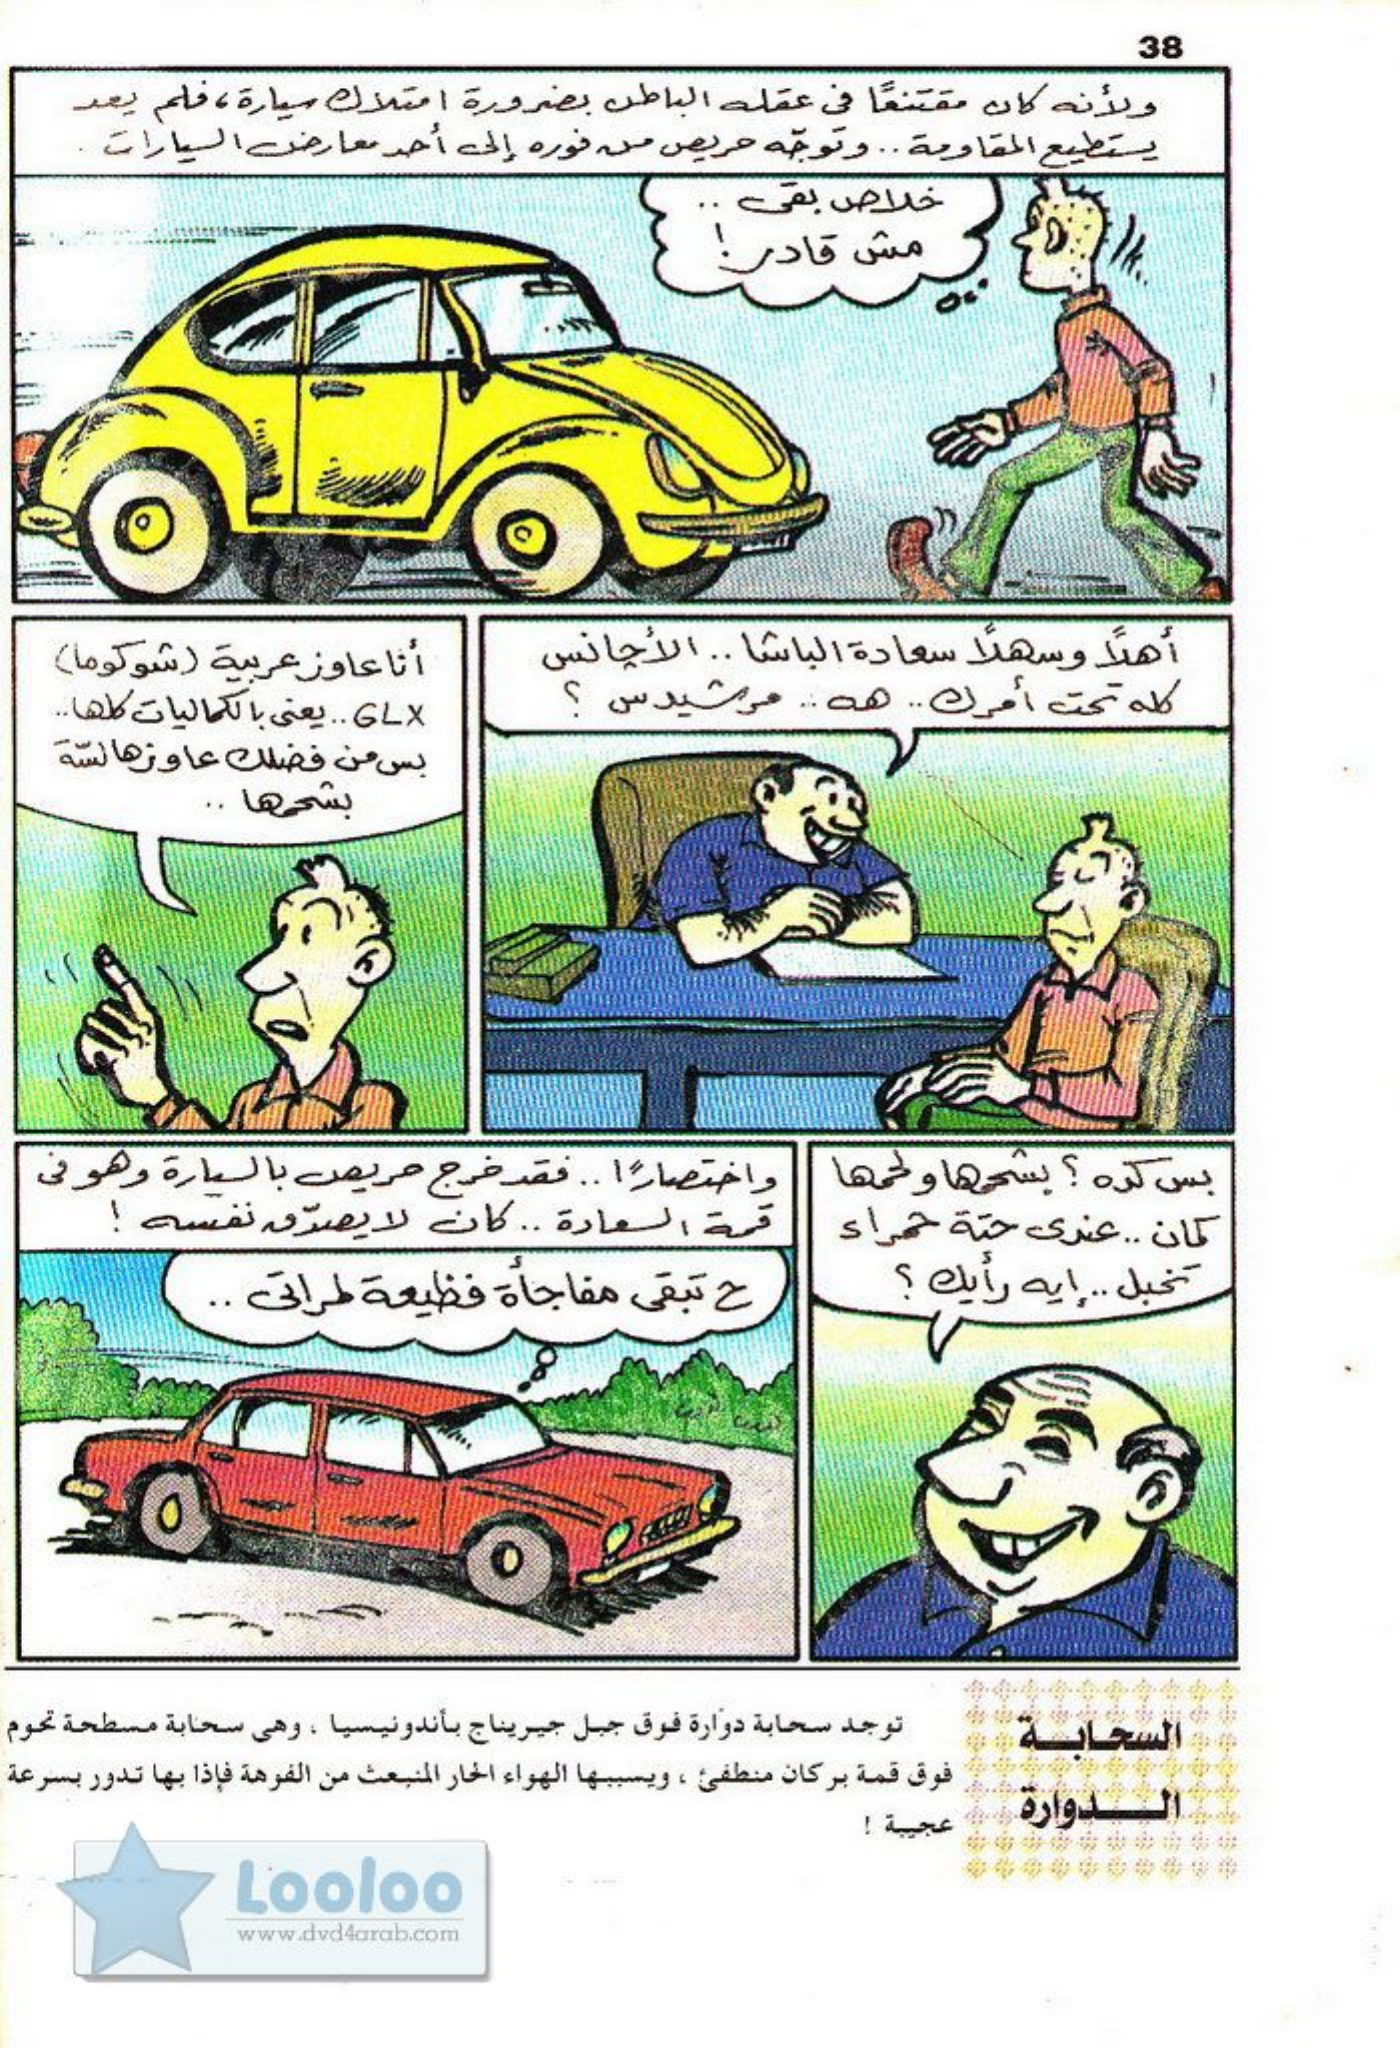 38
ولأنه كان مقتنعًا فى عقله الباطن بضرورة امتلاك سيارة، فلم يعد
يستطيع المقاومة .. وتوجّه حريص من فوره إلى أحد معارض السيارات .
خلاص بقى ..
مش قادر !
أهلاً وسهلاً سعادة الباشا .. الأجانس
كله تحت أمرك .. هه .. مرشيدس ؟
أنا عاوز عربية (شوكوما)
GLX .. يعنى بالكماليات كلها ..
بس من فضلك عاوزها لسّة
بشحمها ..
بس كده ؟ بشحمها ولحمها
كمان .. عندى حتة حمراء
تخبل .. إيه رأيك ؟
واختصارًا .. فقد خرج حريص بالسيارة وهو فى
قمة السعادة .. كان لا يصدّق نفسه !
ح تبقى مفاجأة فظيعة لمراتى ..
السحابة
الدوارة
توجد سحابة دوارة فوق جبل جيريناج بأندونيسيا ، وهى سحابة مسطحة تحوم
فوق قمة بركان منطفئ ، ويسببها الهواء الحار المنبعث من الفوهة فإذا بها تدور بسرعة
عجيبة !
Looloo
www.dvd4arab.com